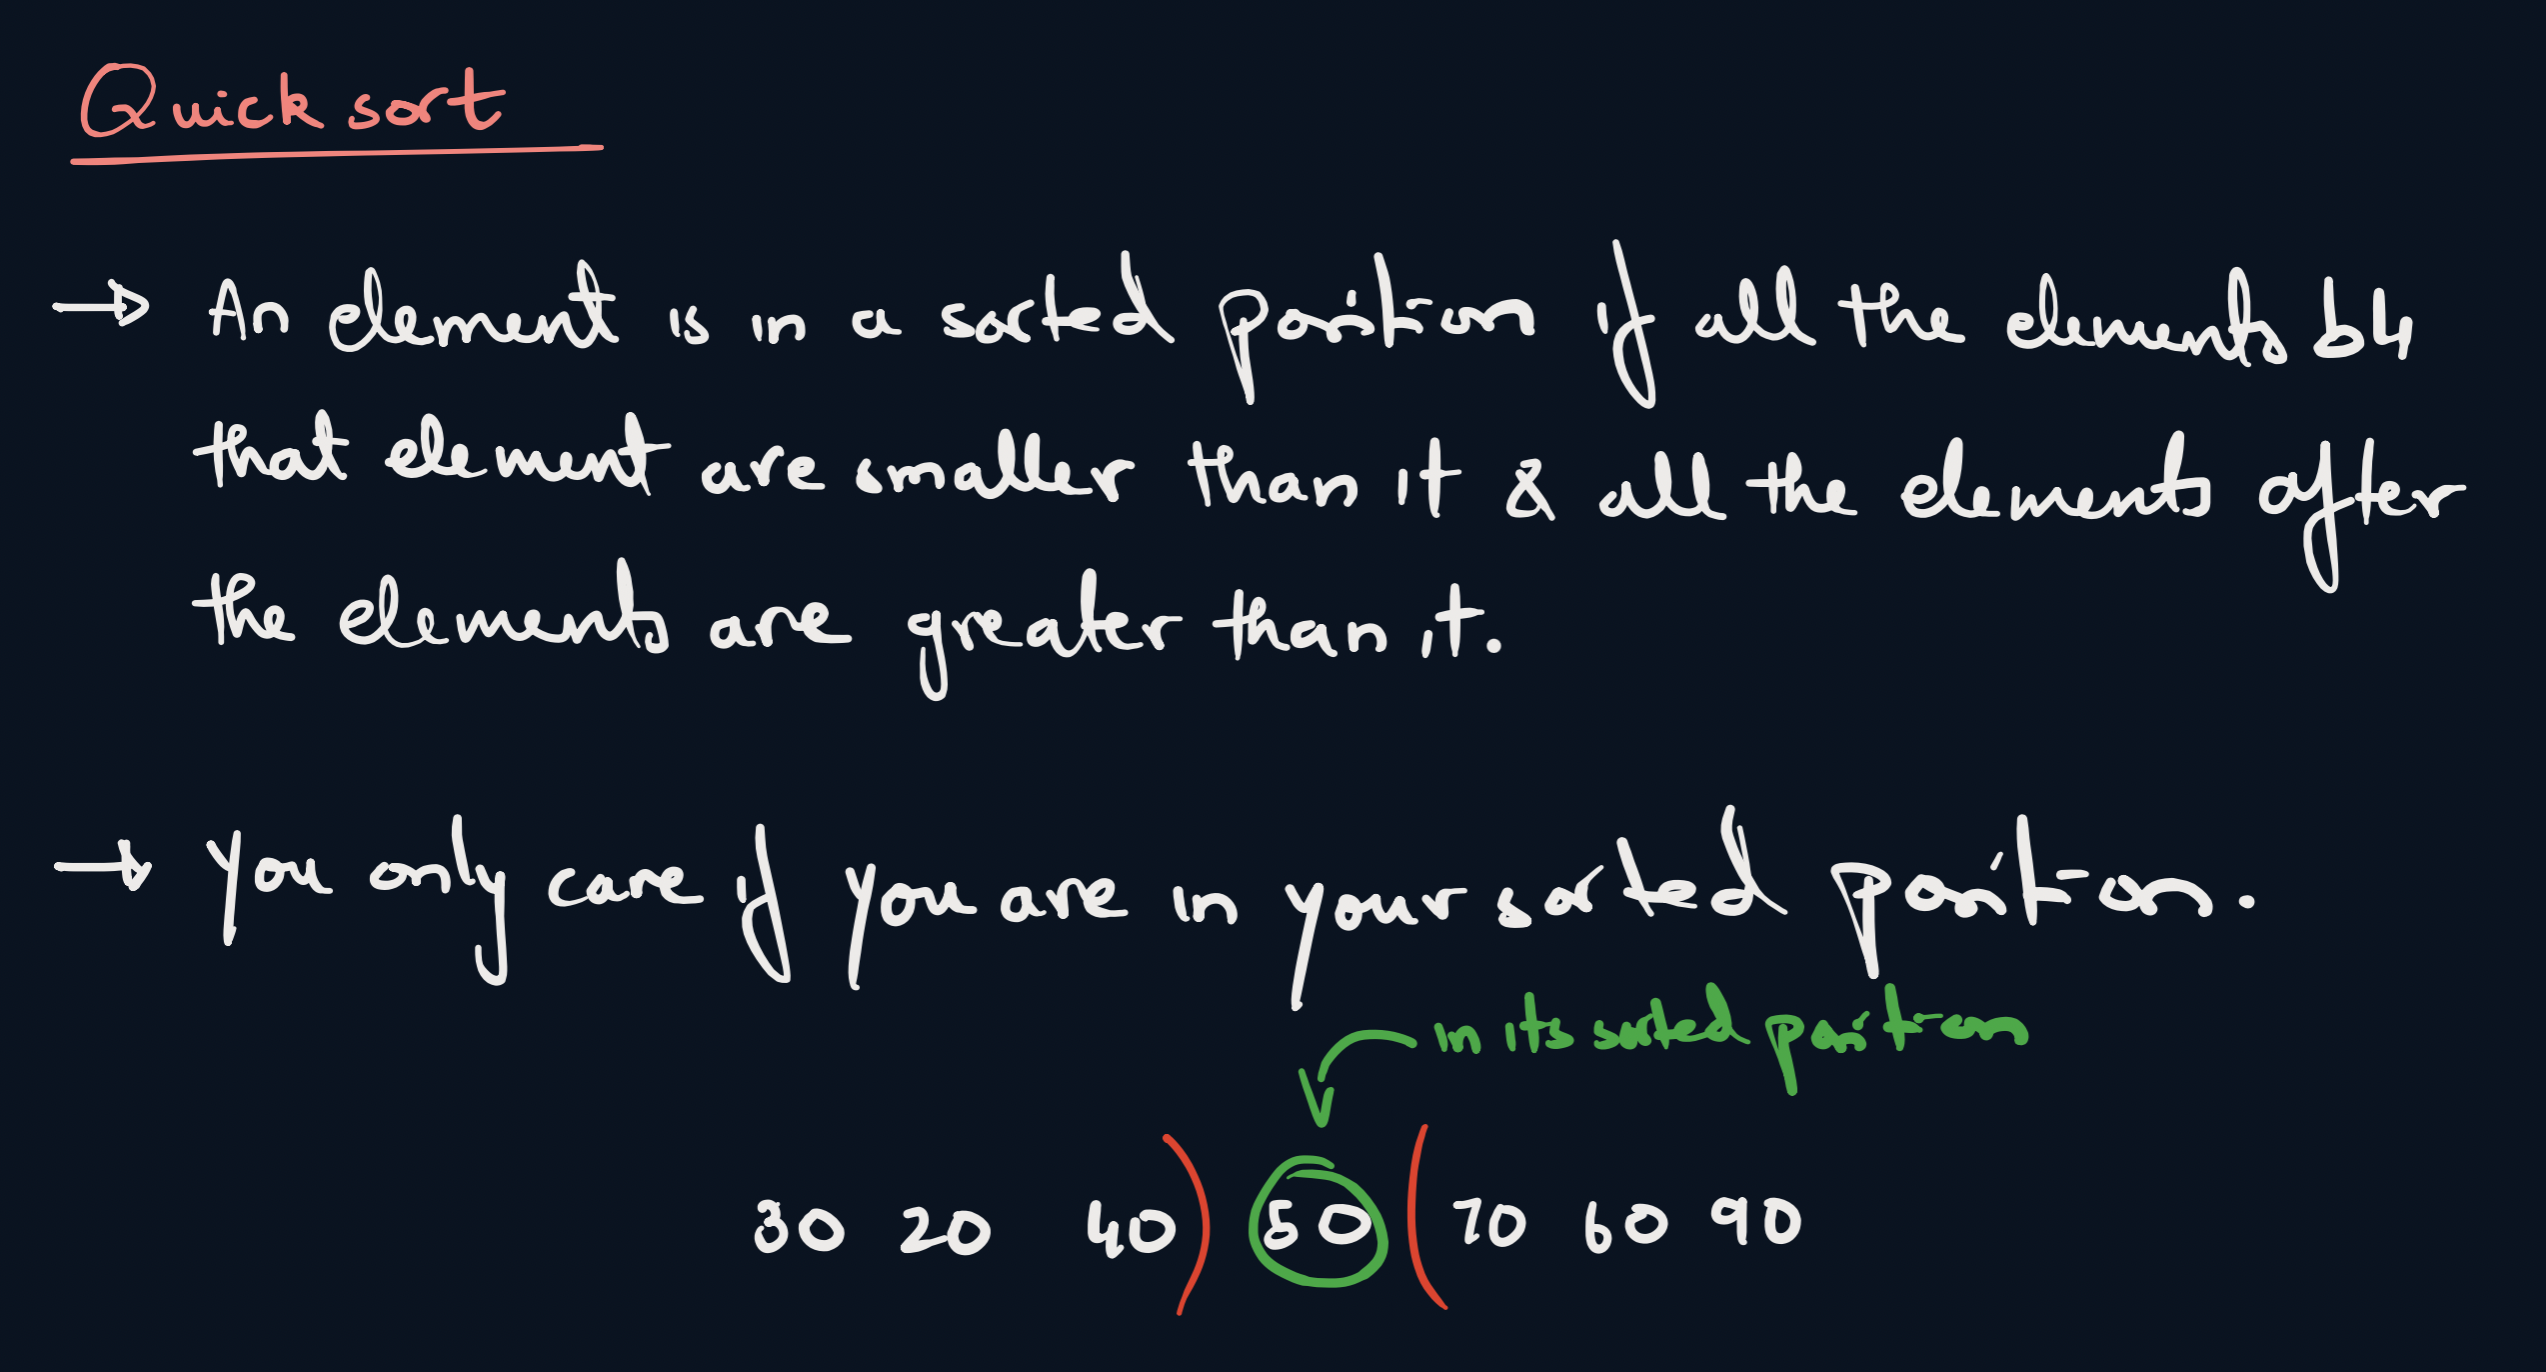 Quick sort
→ An element is in a sorted position if all the elements b4
that element are smaller than it & all the elements after
the elements are greater than it.
→ You only care if you are in your sorted position.
in its sorted position
30 20 40) 50 (70 60 90